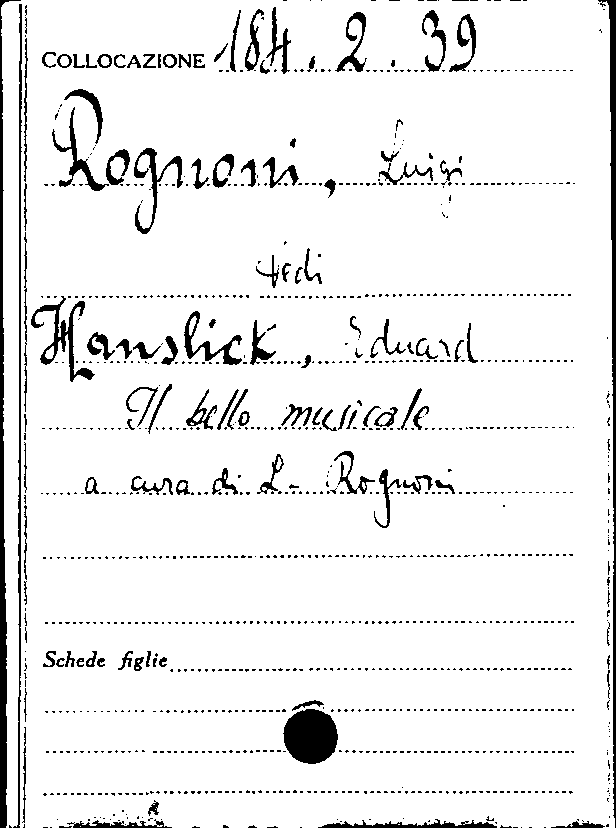 COLLOCAZIONE 184. 2. 39
Rognoni, Luigi
vedi
Hanslick, Eduard
Il bello musicale
a cura di L. Rognoni
Schede figlie